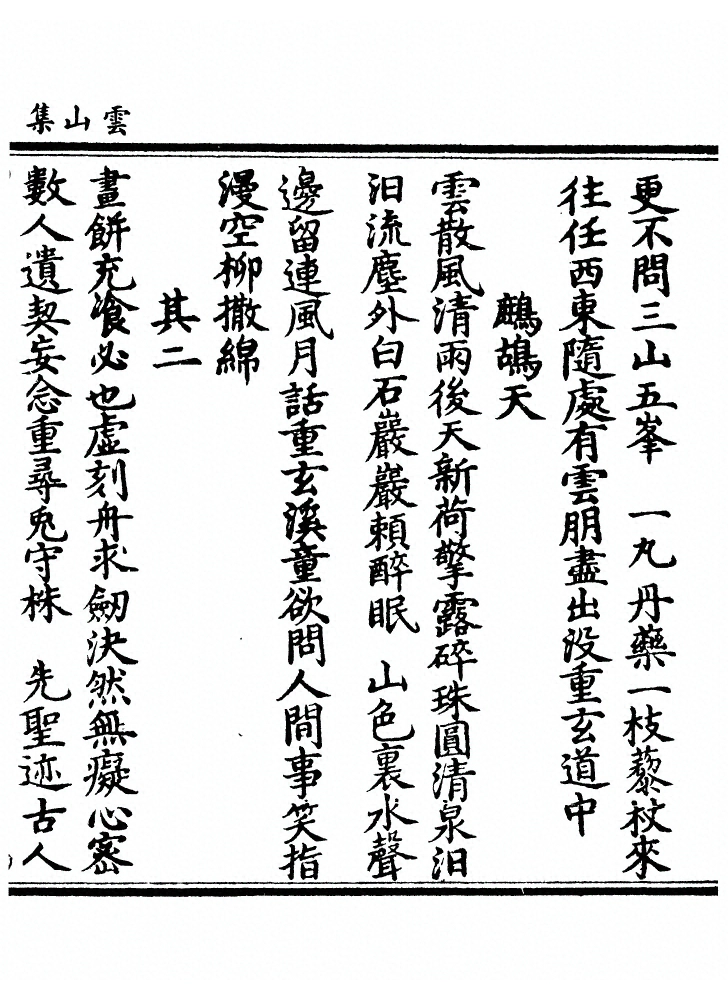 雲山集
更不問三山五峯　一丸丹藥一枝藜杖來
往任西東隨處有雲朋盡出没重玄道中
鷓鴣天
雲散風清雨後天新荷擎露碎珠圓清泉汩
汩流塵外白石巖巖頼醉眠　山色裏水聲
邊留連風月話重玄溪童欲問人間事笑指
漫空柳撒綿
其二
畫餅充飡必也虛刻舟求劒決然無癡心密
數人遺契妄念重尋兎守株　先聖迹古人